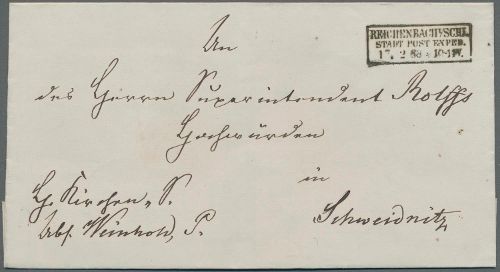 An
REICHENBACH I/SCHL.
STADT POST EXPED.
17 2 68 10-11V.
des Herrn Superintendent Rolffs
Hochwürden
in
H. Kirchen S.
Schweidnitz
Abs. Weinhold, P.